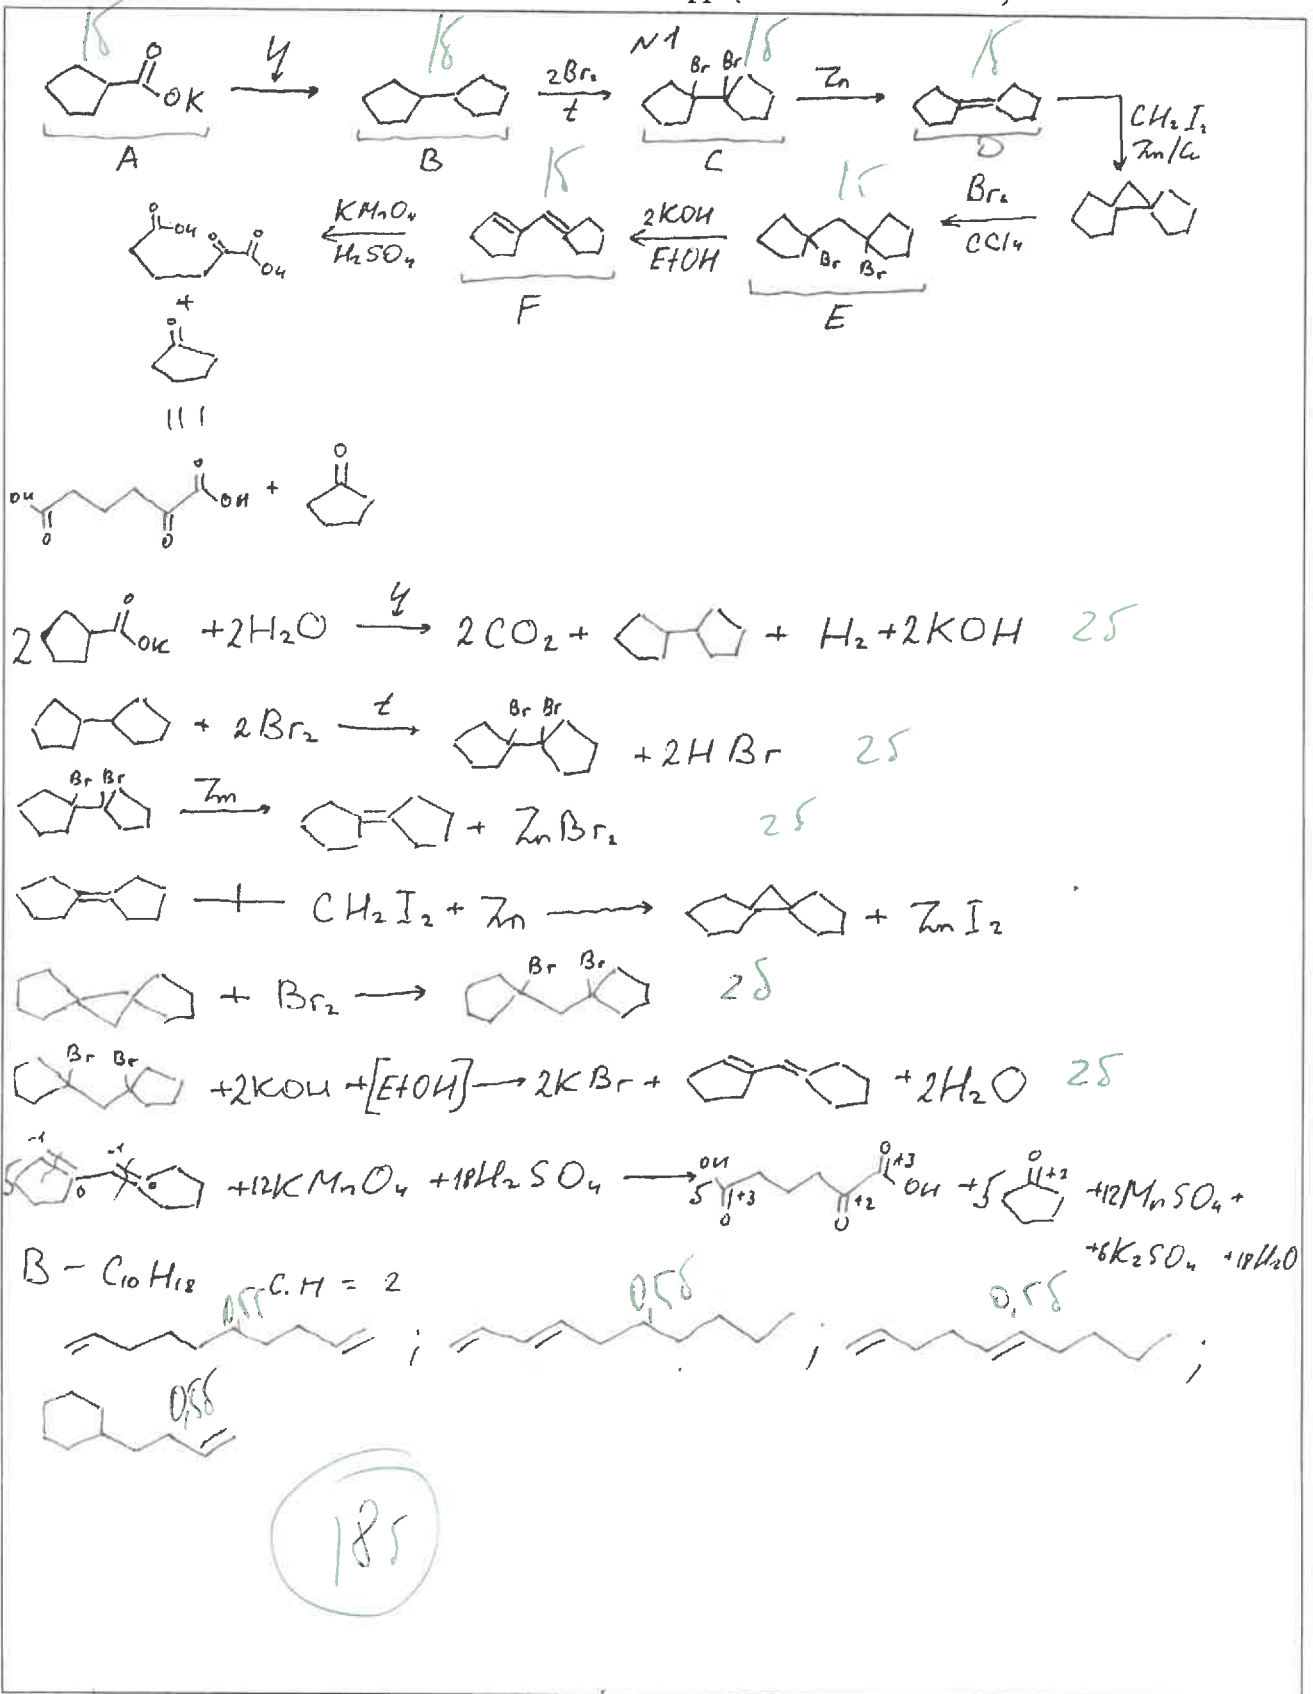 N1
1б 1б 1б 1б
O OK ϟ 2Br₂ t Br Br Zn CH₂I₂ Zn/Cu
A B C D
1б 1б
O OH O O OH KMnO₄ H₂SO₄ 2KOH EtOH Br Br Br₂ CCl₄
F E
+
O
|||
OH O O O OH + O
2 O OK +2H₂O ϟ 2CO₂ + + H₂ +2KOH 2б
+ 2Br₂ t Br Br + 2HBr 2б
Br Br Zn + ZnBr₂ 2б
+ CH₂I₂ + Zn + ZnI₂
+ Br₂ Br Br 2б
Br Br +2KOH +[EtOH] 2KBr + +2H₂O 2б
5 -1 0 -1 0 +12KMnO₄ +18H₂SO₄ 5 OH O +3 O +2 O +3 OH +5 O +2 +12MnSO₄ +
+6K₂SO₄ +18H₂O
B – C₁₀H₁₈ С.Н = 2
0,5б ; 0,5б ; 0,5б ;
0,5б
18б